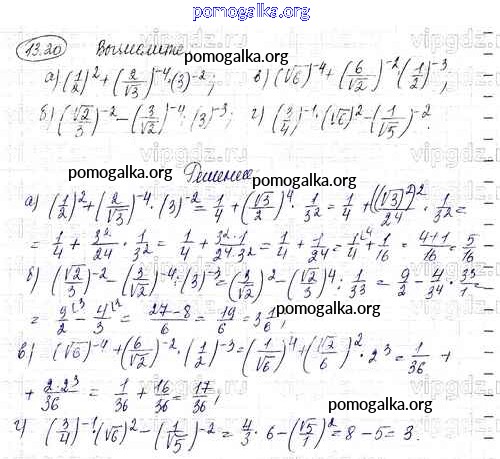 pomogalka.org
13.20 Вычислите:
pomogalka.org
а) (1/2)² + (2/√3)⁻⁴ · (3)⁻²; в) (√6)⁻⁴ + (6/√2)⁻² · (1/2)⁻³;
б) (√2/3)⁻² − (3/√2)⁻⁴ : (3)⁻³; г) (3/4)⁻¹ · (√6)² − (1/√5)⁻².
pomogalka.org pomogalka.org
Решение
pomogalka.org pomogalka.org
а) (1/2)² + (2/√3)⁻⁴ · (3)⁻² = 1/4 + (√3/2)⁴ · 1/3² = 1/4 + ((√3)²)²/2⁴ · 1/3² =
= 1/4 + 3²/2⁴ · 1/3² = 1/4 + 3²·1/2⁴·3² = 1/4 + 1/2⁴ = 1/4 + 1/16 = 4+1/16 = 5/16
pomogalka.org
б) (√2/3)⁻² − (3/√2)⁻⁴ : (3)⁻³ = (3/√2)² − (√2/3)⁴ : 1/3³ = 9/2 − 4/3⁴ · 3³/1 =
= 9/2 − 4/3 = 27−8/6 = 19/6 = 3 1/6;
pomogalka.org
в) (√6)⁻⁴ + (6/√2)⁻² · (1/2)⁻³ = (1/√6)⁴ + (√2/6)² · 2³ = 1/36 +
+ 2·2³/36 = 1/36 + 16/36 = 17/36;
pomogalka.org
г) (3/4)⁻¹ · (√6)² − (1/√5)⁻² = 4/3 · 6 − (√5/1)² = 8 − 5 = 3.
pomogalka.org